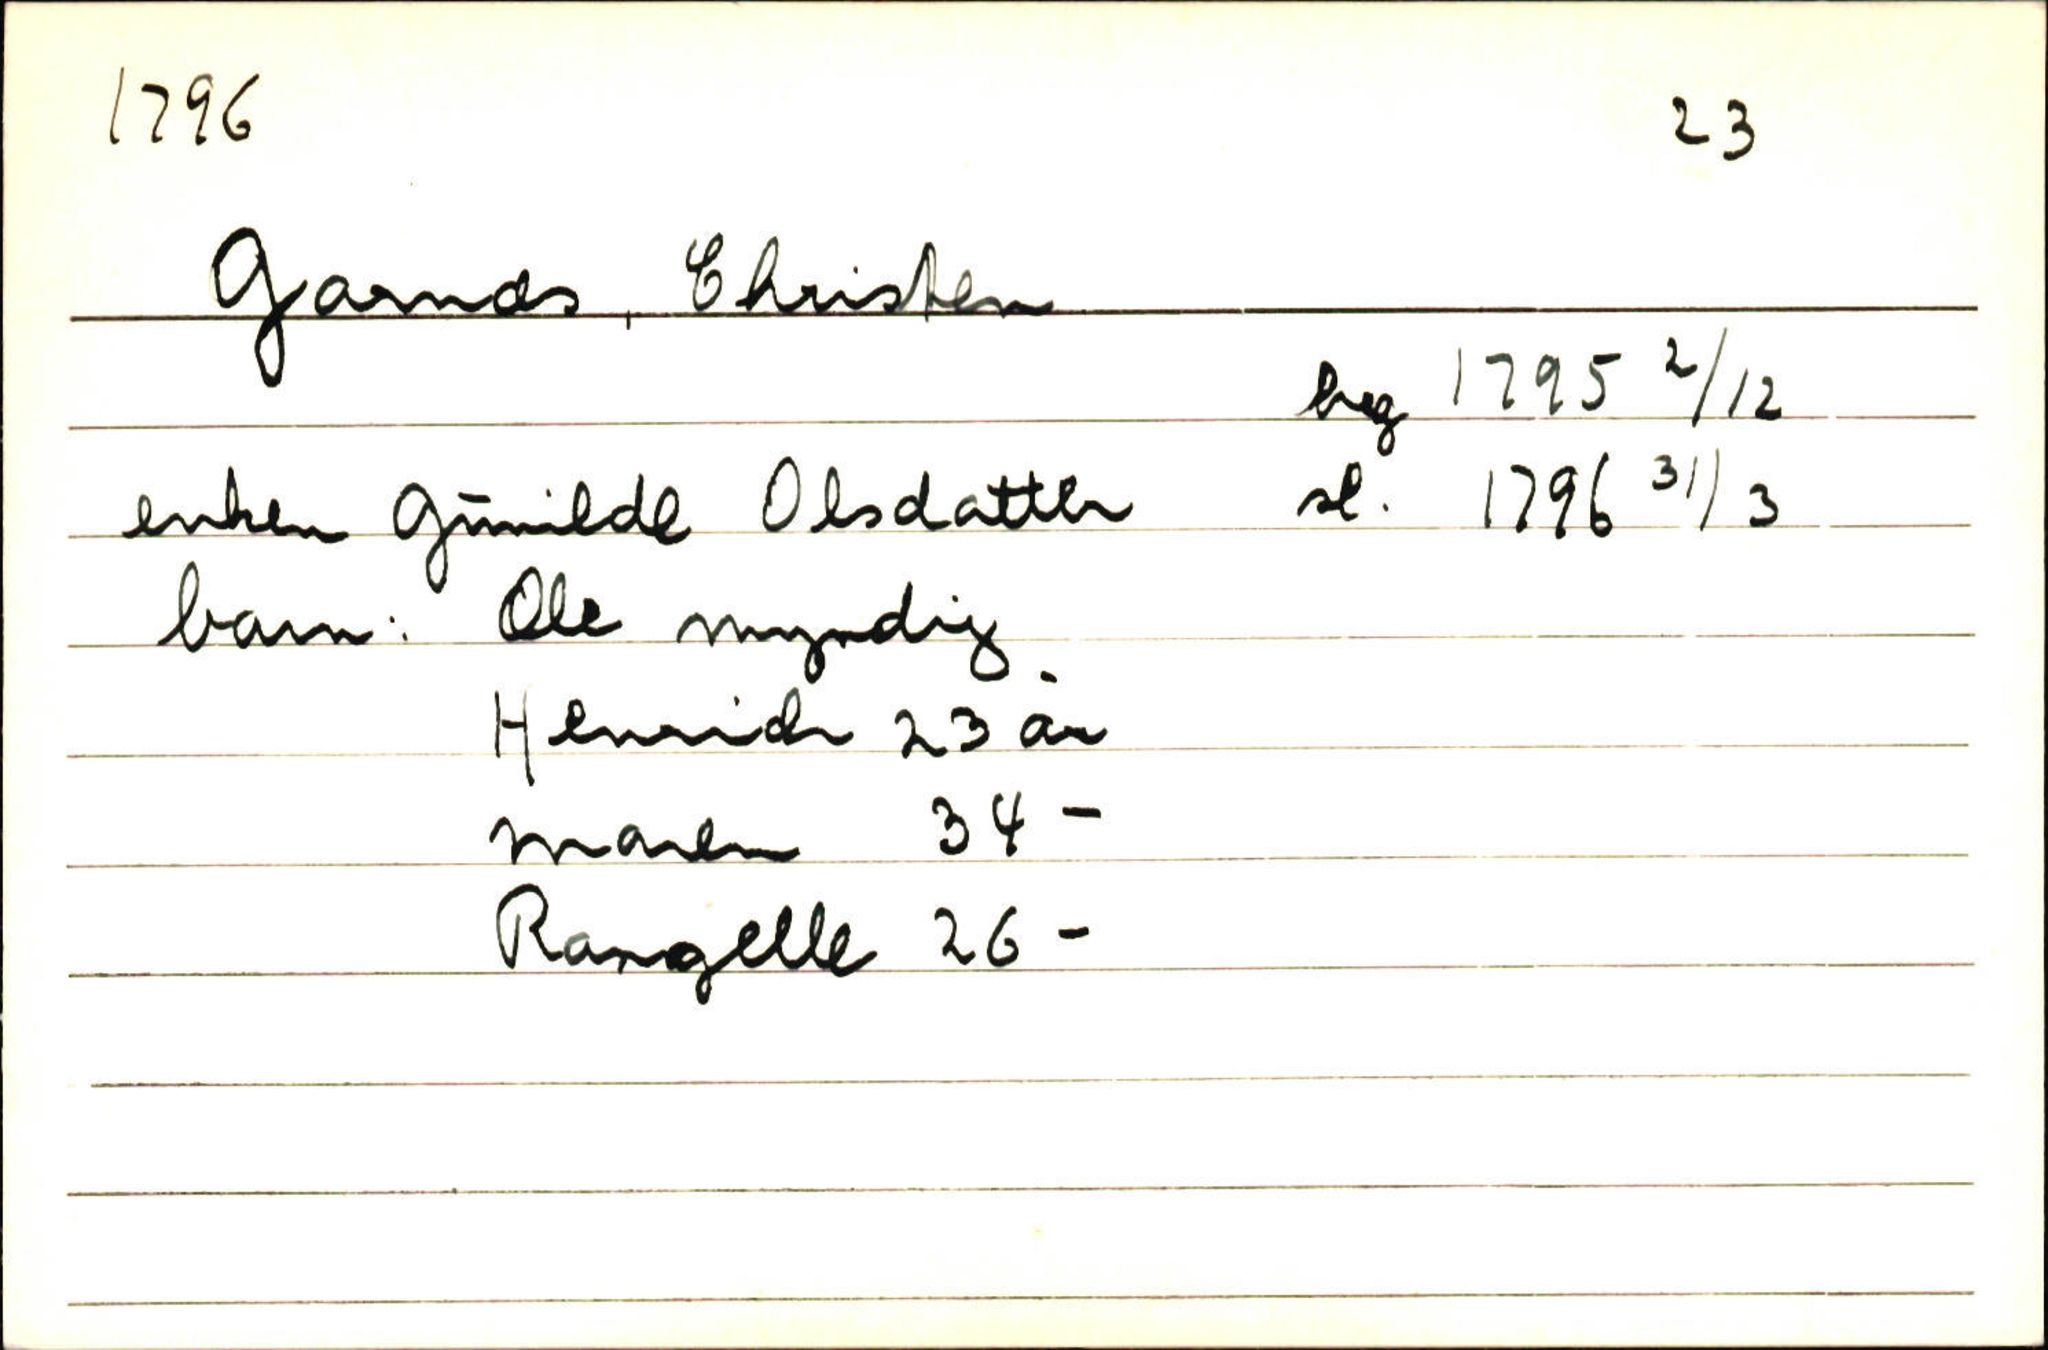 1796 23
Garnæs, Christen
beg 1795 2/12
enken Gün̄ilde Olsdatter sl. 1796 31/3
barn: Ole myndig
Henrich 23 år
Maren 34 -
Rangelle 26 -